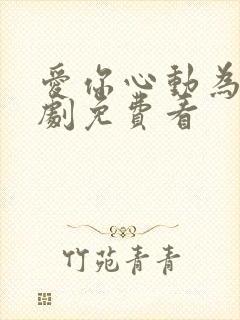 愛你心動為
劇免費看
竹苑青青